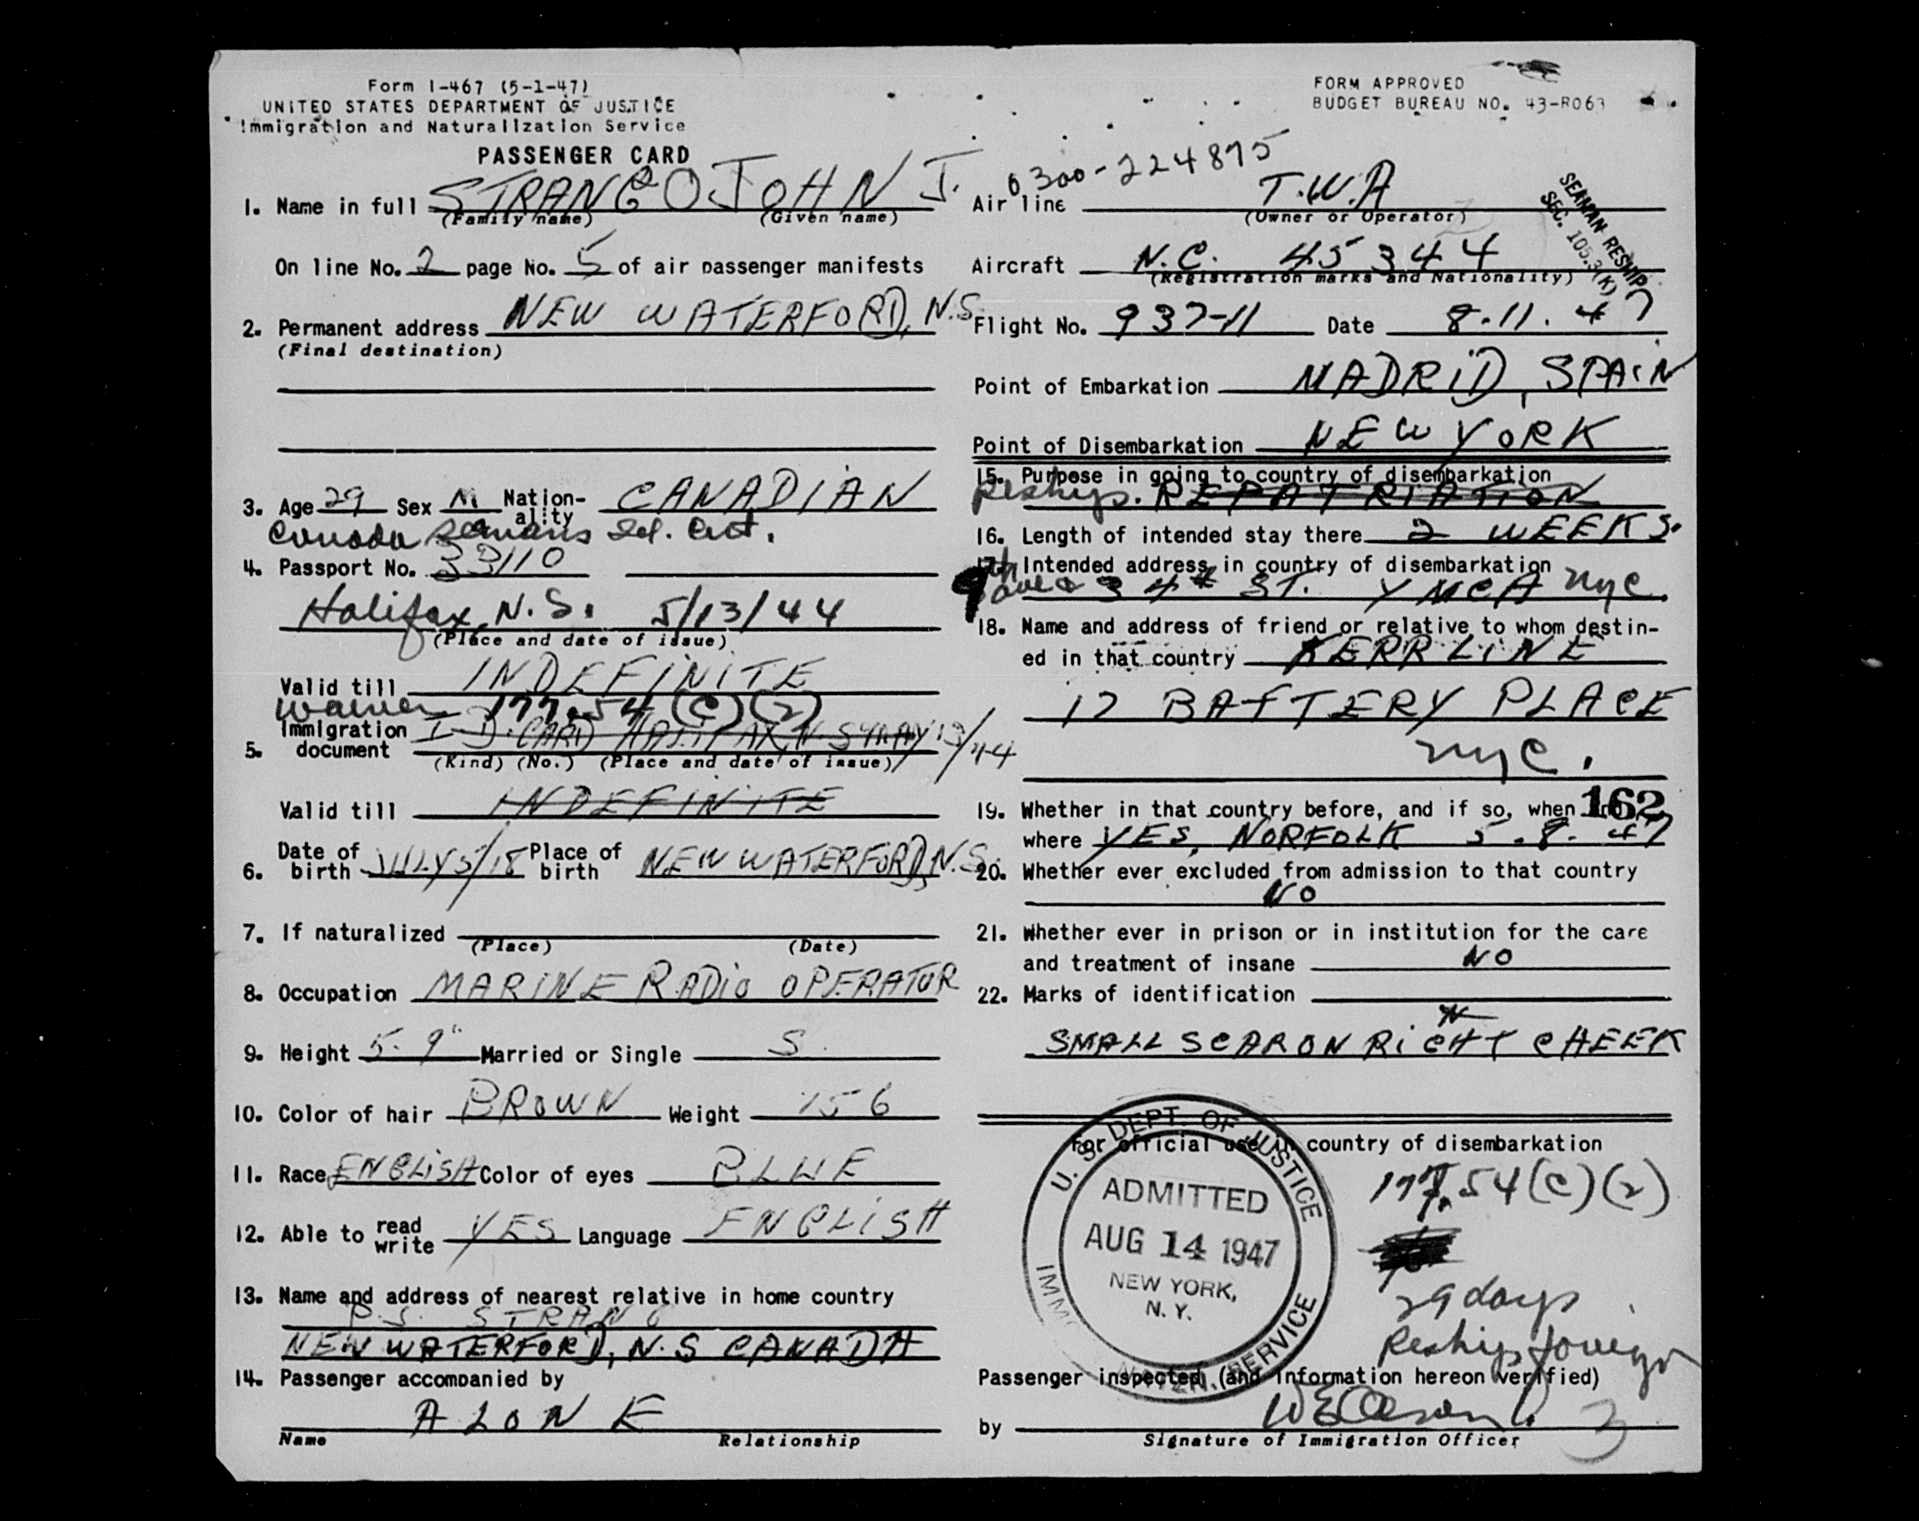 Form I-467 (5-1-47)
UNITED STATES DEPARTMENT OF JUSTICE
Immigration and Naturalization Service
PASSENGER CARD
1. Name in full STRANG JOHN J.
(Family name) (Given name)
On line No. 2 page No. 5 of air passenger manifests
2. Permanent address NEW WATERFORD, N.S.
(Final destination)
3. Age 29 Sex M Nationality CANADIAN
Canada Seamans Id. Cert.
4. Passport No. 33110
Halifax, N.S. 5/13/44
(Place and date of issue)
Valid till INDEFINITE
Waiver 177.54 (C)(2)
5. Immigration document I.D. CARD HALIFAX, N.S. MAY 13/44
(Kind) (No.) (Place and date of issue)
Valid till INDEFINITE
6. Date of birth JULY 5/18 Place of birth NEW WATERFORD, N.S.
7. If naturalized
(Place) (Date)
8. Occupation MARINE RADIO OPERATOR
9. Height 5-9" Married or Single S
10. Color of hair BROWN Weight 156
11. Race ENGLISH Color of eyes BLUE
12. Able to read write YES Language ENGLISH
13. Name and address of nearest relative in home country
P.S. STRANG
NEW WATERFORD, N.S CANADA
14. Passenger accompanied by
ALONE
Name Relationship
FORM APPROVED
BUDGET BUREAU NO. 43-R063
0300-224875
Air line T.W.A
(Owner or Operator)
SEAMAN RESHIP
SEC. 105.3(K)
Aircraft N.C. 45344
(Registration marks and Nationality)
Flight No. 937-11 Date 8.11.47
Point of Embarkation MADRID, SPAIN
Point of Disembarkation NEW YORK
15. Purpose in going to country of disembarkation
Reship. REPATRIATION
16. Length of intended stay there 2 WEEKS.
17. Intended address in country of disembarkation
9th ave & 34th ST. YMCA NYC.
18. Name and address of friend or relative to whom destined in that country KERR LINE
17 BATTERY PLACE
NYC.
162
19. Whether in that country before, and if so, when and
where YES, NORFOLK 5.8.47
20. Whether ever excluded from admission to that country
NO
21. Whether ever in prison or in institution for the care
and treatment of insane NO
22. Marks of identification
SMALL SCAR ON RIGHT CHEEK
For official use in country of disembarkation
U. S. DEPT. OF JUSTICE
ADMITTED
AUG 14 1947
NEW YORK,
N. Y.
177.54(C)(2)
29 days
Reship foreign
Passenger inspected (and information hereon verified)
by
Signature of Immigration Officer
3